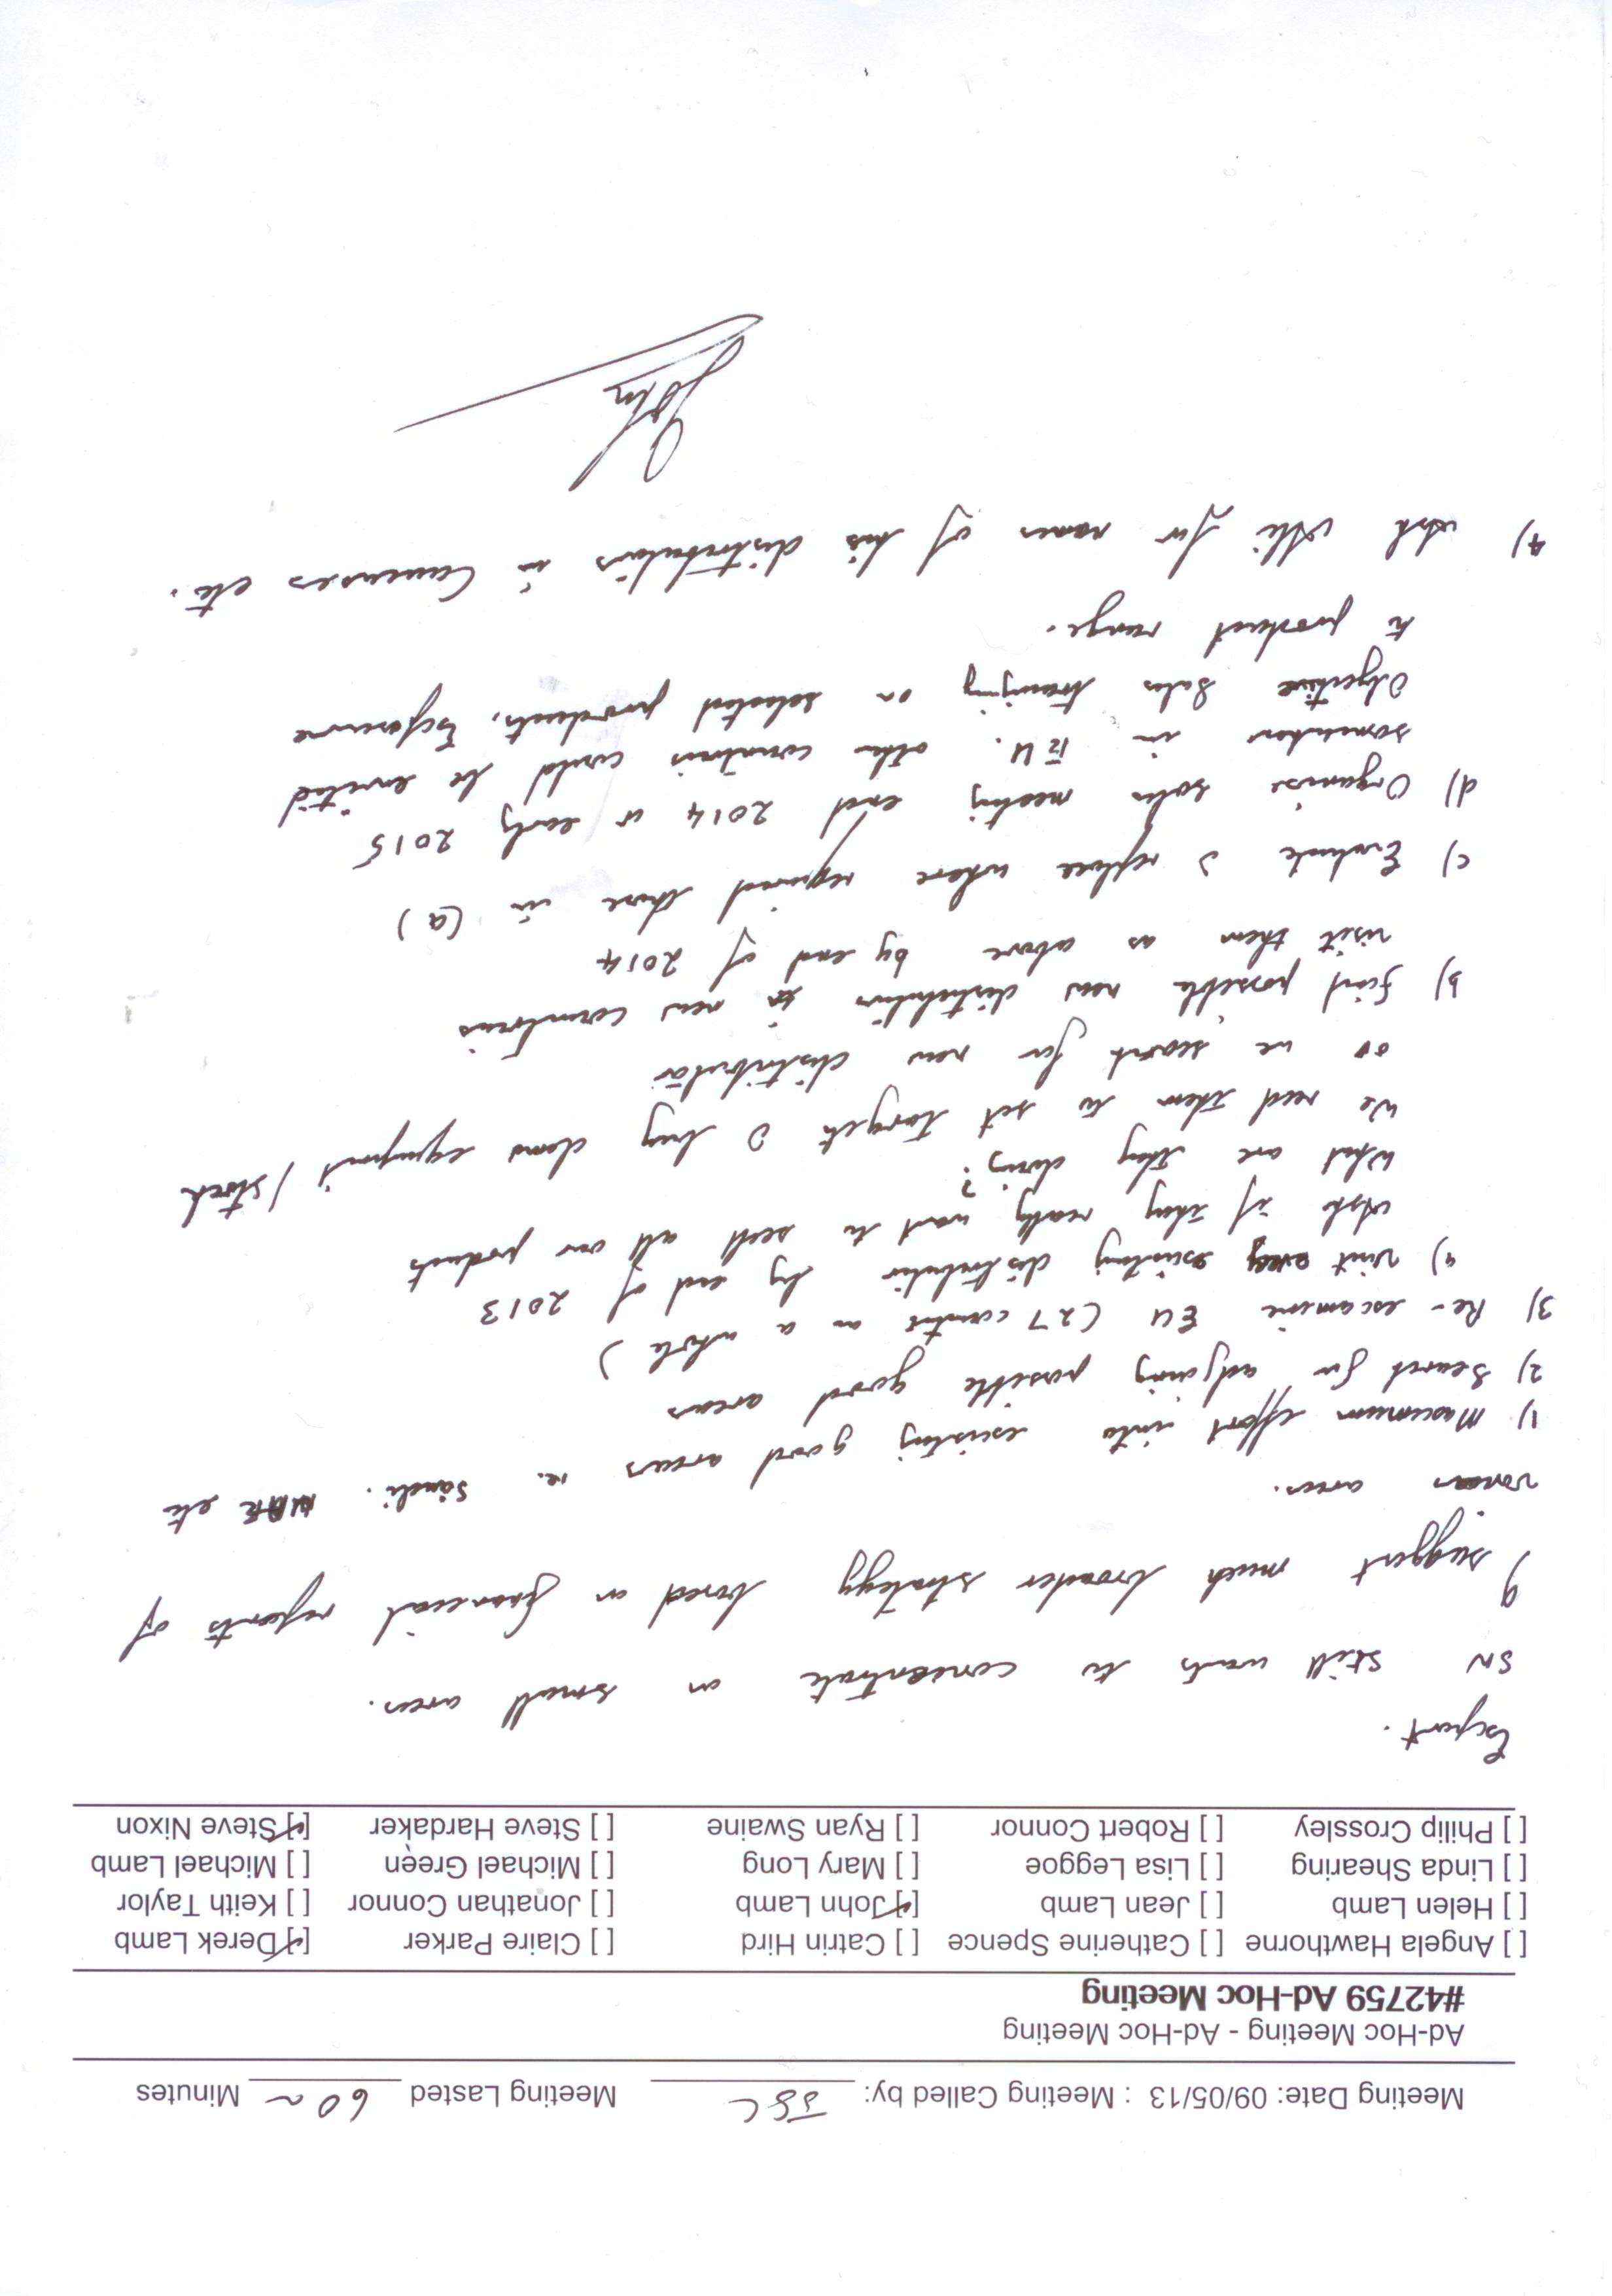 Meeting Date: 09/05/13 : Meeting Called by: JSL Meeting Lasted 60 m Minutes
Ad-Hoc Meeting - Ad-Hoc Meeting
#42759 Ad-Hoc Meeting
[ ] Angela Hawthorne [ ] Catherine Spence [ ] Catrin Hird [ ] Claire Parker [✓] Derek Lamb
[ ] Helen Lamb [ ] Jean Lamb [✓] John Lamb [ ] Jonathan Connor [ ] Keith Taylor
[ ] Linda Shearing [ ] Lisa Leggoe [ ] Mary Long [ ] Michael Green [ ] Michael Lamb
[ ] Philip Crossley [ ] Robert Connor [ ] Ryan Swaine [ ] Steve Hardaker [✓] Steve Nixon
Export.
SN still wants to concentrate on small areas.
I suggest much broader strategy based on financial reports of
various areas.
1) Maximum effort into existing good areas ie. Saudi. etc
2) Search for adjoining possible good areas
3) Re-examine EU (27 countries as a whole)
a) visit existing distributor by end of 2013
Ask if they really want to sell all our products
What are they doing?
We need them to set targets & buy demo equipment / stock
or we search for new distributor
b) find possible new distributors in new countries
visit them as above by end of 2014
c) Evaluate & replace where required those in (a)
d) Organise sales meeting end 2014 or early 2015
somewhere in EU. other countries could be invited
Objective Sales training on selected products. Exposure
to product range.
4) Ask Ali for names of his distributors in etc.
John